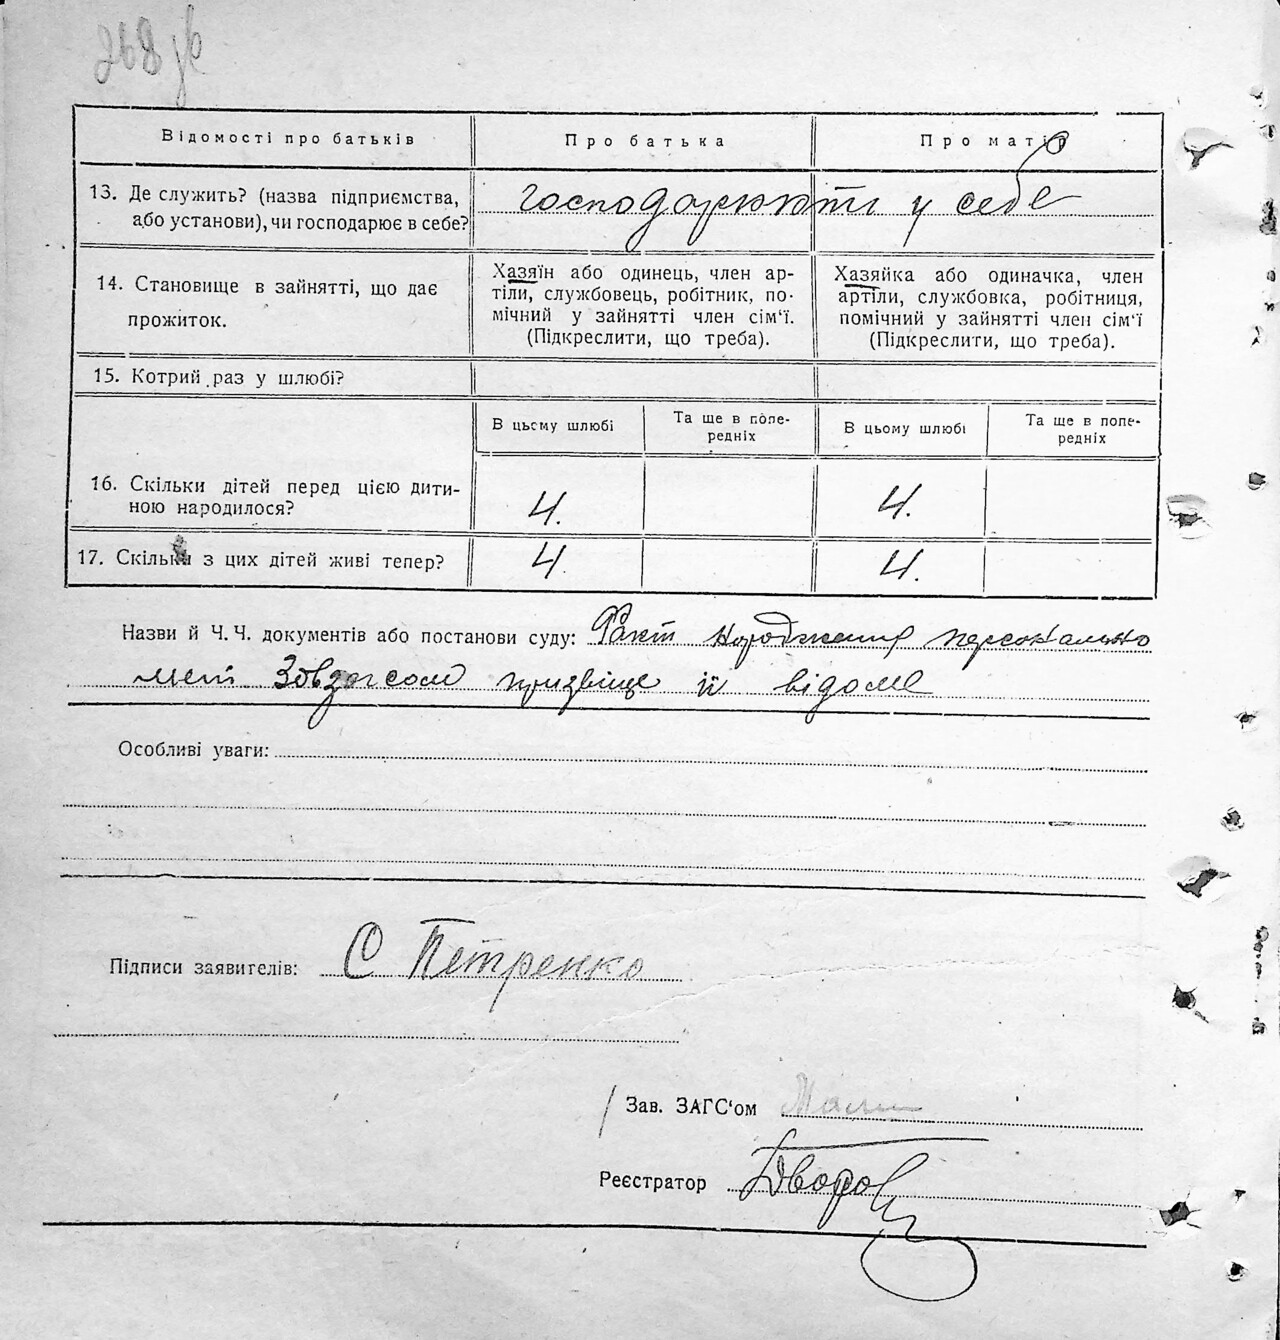 268 зв
Відомості про батьків Про батька Про матір
13. Де служить? (назва підприємства, або установи), чи господарює в себе? господарюють у себе
14. Становище в зайнятті, що дає прожиток.
Хазяїн або одинець, член ар-
тіли, службовець, робітник, по-
мічний у зайнятті член сім'ї.
(Підкреслити, що треба).
Хазяйка або одиначка, член
артіли, службовка, робітниця,
помічний у зайнятті член сім'ї
(Підкреслити, що треба).
15. Котрий раз у шлюбі?
В цьому шлюбі Та ще в попе-
редніх В цьому шлюбі Та ще в попе-
редніх
16. Скільки дітей перед цією дити-
ною народилося? 4. 4.
17. Скільки з цих дітей живі тепер? 4. 4.
Назви й Ч. Ч. документів або постанови суду: Факт народження персонально
мені Завзагсом прізвище її відоме
Особливі уваги:
Підписи заявителів: С Петренко
Зав. ЗАГС'ом
Реєстратор